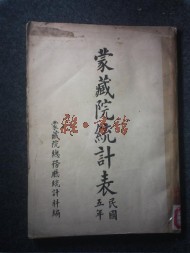 蒙藏院統計表
民國五年
蒙藏院總務廳統計科編